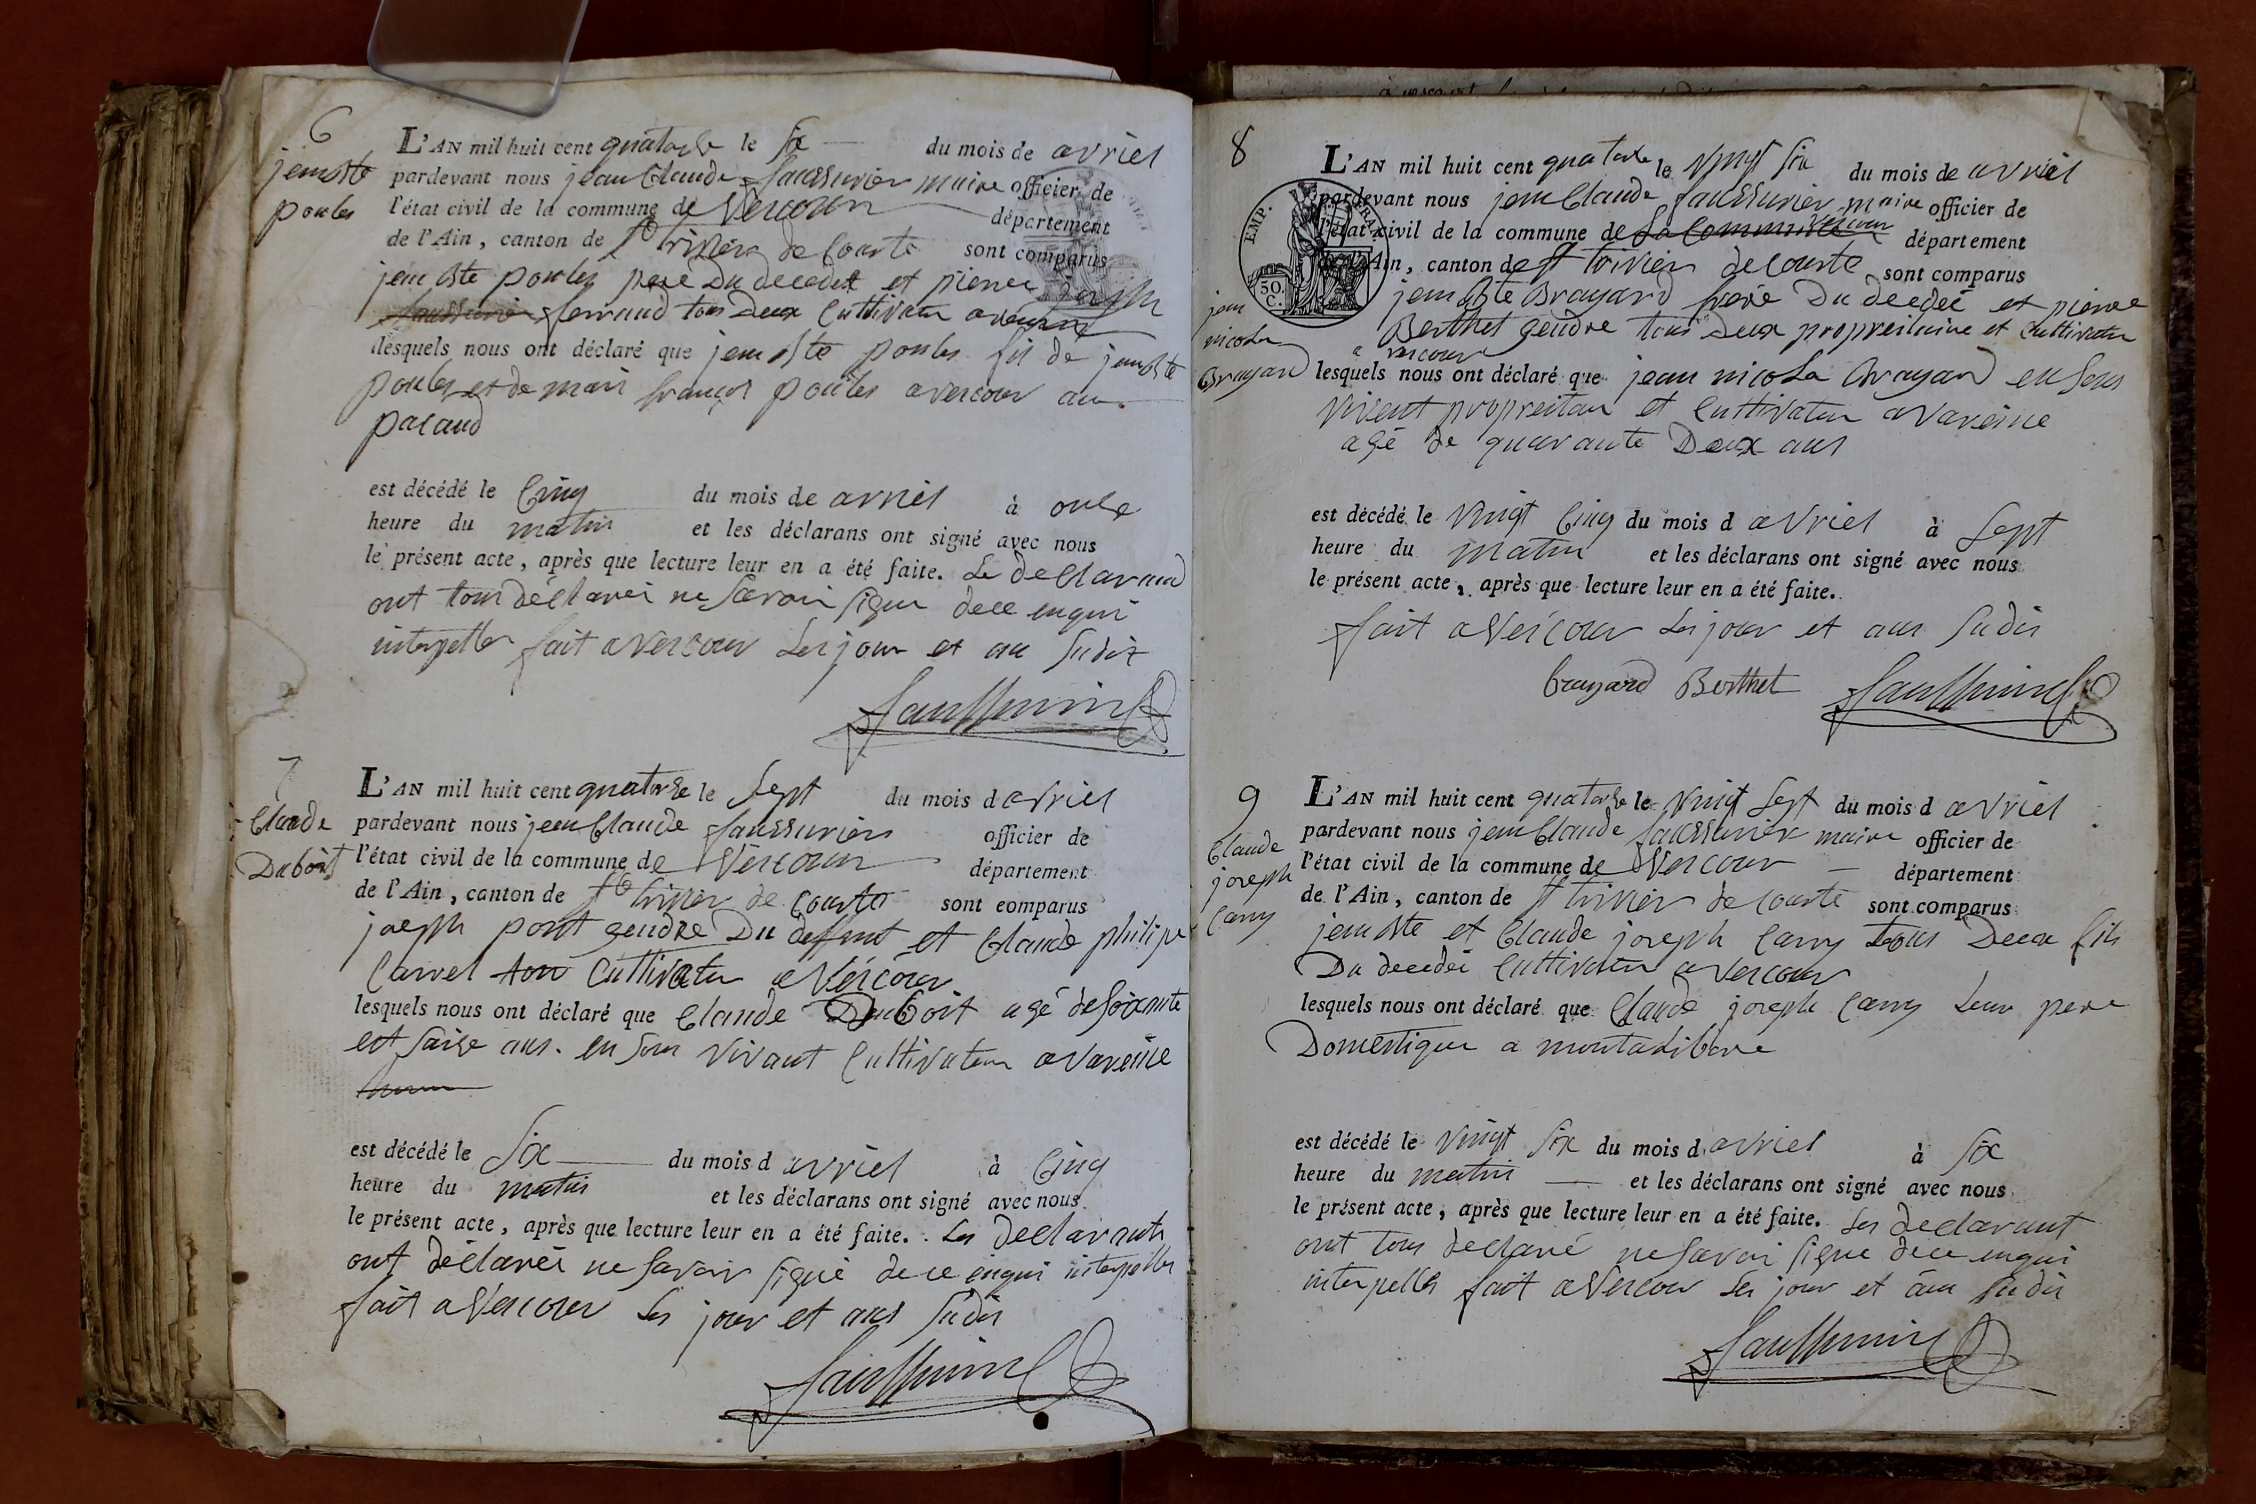 6
jean bte
poules
L'AN mil huit cent quatorze le six du mois de avriel
pardevant nous jean Claude saussurier maire officier de
l'état civil de la commune de Vescour département
de l'Ain, canton de st trivier de Courte sont comparus
jean bte poules pere Du decedét et pierre
ferraud tous Deux Cultivateur a vescour
lesquels nous ont déclaré que jean bte poules fils de jean bte
poules et de mari françois poules a vescour au
pacaud
est décédé le Cinq du mois de avriel à onze
heure du matin et les déclarans ont signé avec nous
le présent acte, après que lecture leur en a été faite. Le declarand
ont tous déclarér ne savoir signer dece enqui
interpeller fait a Vescour les jour et an sudit
7
Claude
Duboit
L'AN mil huit cent quatorze le sept du mois d avriel
pardevant nous jean Claude saussurier officier de
l'état civil de la commune de Vescour département
de l'Ain, canton de st trivier de Courte sont comparus
joseph pont gendre Du deffunt et Claude philipe
Carrel tous Cultivateur a Vescour
lesquels nous ont déclaré que Claude Duboit agé de soixante
et saize ans. en son vivant Cultivateur a vareine
est décédé le six du mois d avriel à Cinq
heure du matin et les déclarans ont signé avec nous
le présent acte, après que lecture leur en a été faite. Les declarants
ont déclarér ne savoir signé dece enqui interpeller
fait a Vescour les jour et ans sudit
8
jean
nicola
Brayard
EMP. FRAN
50. C.
L'AN mil huit cent quatorze le vingt six du mois de avriel
pardevant nous jean Claude saussurier maire officier de
l'état civil de la commune de la Commune Vescour département
de l'Ain, canton de st trivier de Courte sont comparus
jean bte Brayard frere Du decedé et pierre
Berthet gendre tous Deux propreitaire et Cultivateur
a vescour
lesquels nous ont déclaré que jean nicola Brayard en sons
vivent propreitaire et Cultivateur a Vareine
agé de quarante Deux ans
est décédé le vingt Cinq du mois d avriel à sept
heure du matin et les déclarans ont signé avec nous
le présent acte, après que lecture leur en a été faite.
fait a Vescour les jour et ans sudit
brayard Berthet
9
Claude
joseph
Carry
L'AN mil huit cent quatorze le vingt sept du mois d avriel
pardevant nous jean Claude saussurier maire officier de
l'état civil de la commune de Vescour département
de l'Ain, canton de st trivier de Courte sont comparus
jean bte et Claude joseph Carry tous Deux fils
Du decedér Cultivateur a Vescour
lesquels nous ont déclaré que Claude joseph Carry leur pere
Domestique a montalibore
est décédé le vingt six du mois d avriel à six
heure du matin et les déclarans ont signé avec nous
le présent acte, après que lecture leur en a été faite. Les declarant
ont tous declaré ne savoir signer dece enqui
interpeller fait a Vescour les jour et an sudit